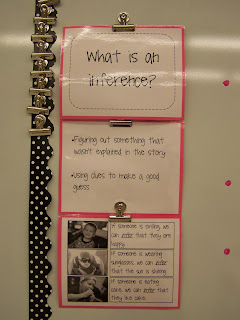 What is an
inference?
•Figuring out something that
wasn't explained in the story
•Using clues to make a good
guess
If someone is smiling, we
can infer that they are
happy.
If someone is wearing
sunglasses, we can infer
that the sun is shining.
If someone is eating
cake, we can infer that
they like cake.